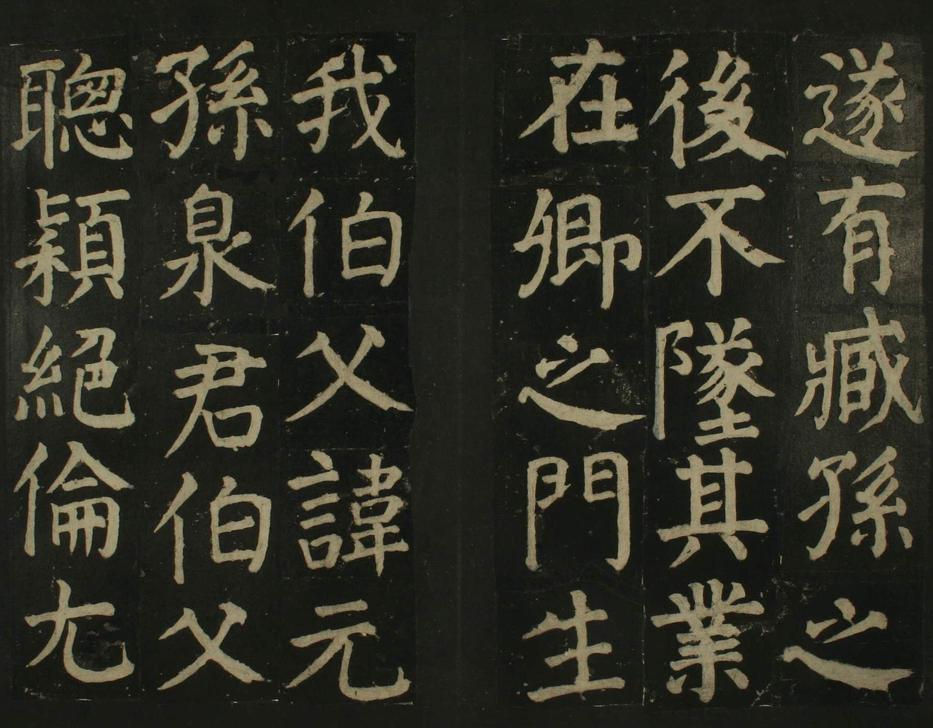 遂有臧孫之
後不墜其業
在卿之門生
我伯父諱元
孫泉君伯父
聰穎絕倫尤